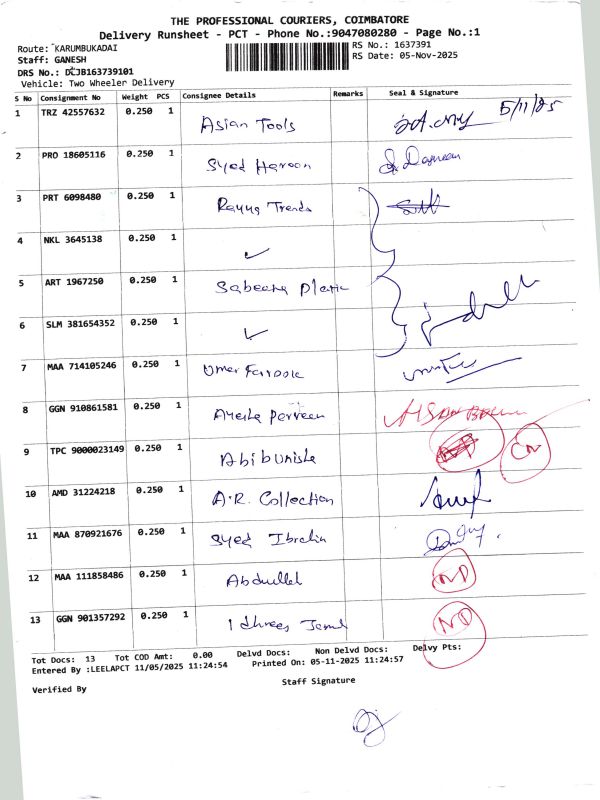 THE PROFESSIONAL COURIERS, COIMBATORE
Delivery Runsheet - PCT - Phone No.:9047080280 - Page No.:1
Route: KARUMBUKADAI
RS No.: 1637391
Staff: GANESH
RS Date: 05-Nov-2025
DRS No.: DCJB163739101
Vehicle: Two Wheeler Delivery
S No Consignment No Weight PCS Consignee Details Remarks Seal & Signature
1 TRZ 42557632 0.250 1 Asian Tools 5/11/25
2 PRO 18605116 0.250 1 Syed Haroon
3 PRT 6098480 0.250 1 Rayya Trends
4 NKL 3645138 0.250 1 ✓
5 ART 1967250 0.250 1 Sabeena Plastic
6 SLM 381654352 0.250 1 ✓
7 MAA 714105246 0.250 1 Umer Farook
8 GGN 910861581 0.250 1 Ayesha Perveen
9 TPC 9000023149 0.250 1 Abibunisha CN
10 AMD 31224218 0.250 1 A.R. Collection
11 MAA 870921676 0.250 1 Syed Ibrahim
12 MAA 111858486 0.250 1 Abdullah ND
13 GGN 901357292 0.250 1 Idhrees Jamal ND
Tot Docs: 13 Tot COD Amt: 0.00 Delvd Docs: Non Delvd Docs: Delvy Pts:
Entered By :LEELAPCT 11/05/2025 11:24:54 Printed On: 05-11-2025 11:24:57
Verified By
Staff Signature